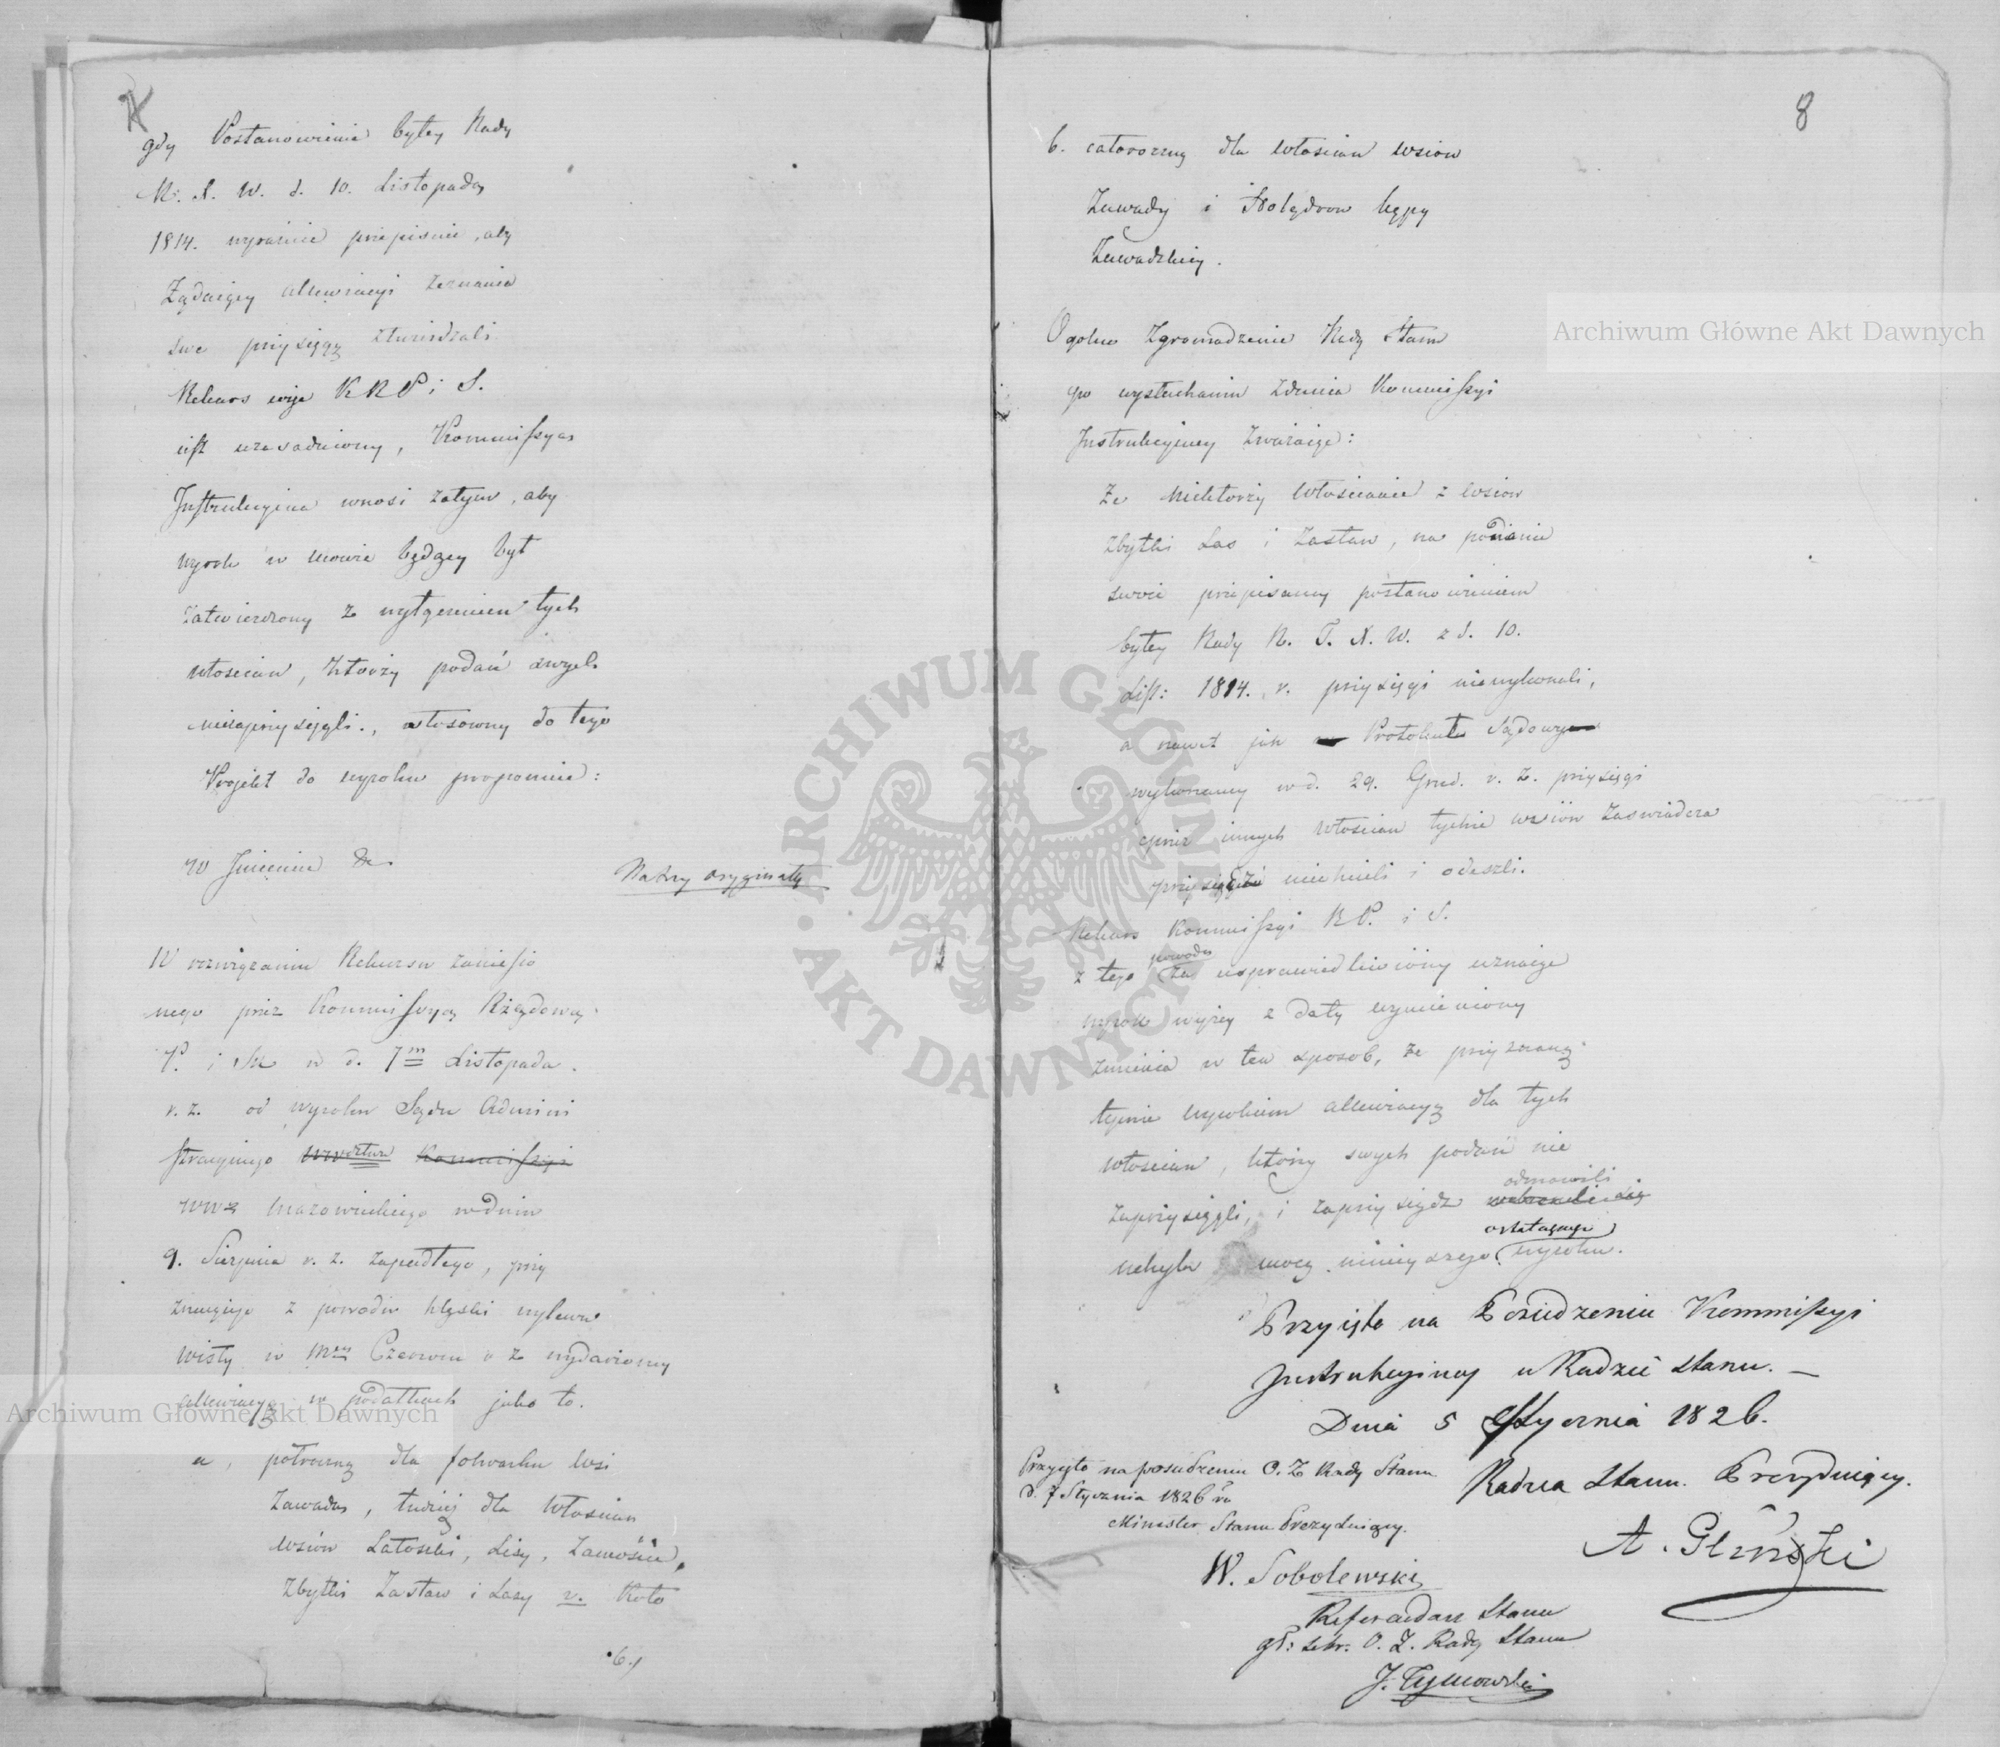 gdy Postanowienie byłey Rady
N. T. W. d. 10. Listopada
1814. wyraznie przepisuie, aby
Ządaiący allewiacyi zeznania
swe przysięgą stwierdzali
Rekurs więc KRP i S.
iest uzasadniony, Kommissya
Instrukcyina wnosi zatym, aby
wyrok w mowie będący był
zatwierdzony z wyłączeniem tych
włoscian, którzy podań swych
niezaprzysięgli., stosowny do tego
Projekt do wyroku proponuie:
W Imieniu &c.
Na try oryginały
W rozwiązaniu Rekursu zaniesio
nego przez Kommissyą Rządową
P. i Sk w d. 7m Listopada
r. z. od wyroku Sądu Admini
stracyinego Kommissyi
Wwa Mazowieckiego w dniu
9. Sierpnia r. z. zapadłego, przy
znaiącego z powodu klęski wylewu
Wisły w Mcu Czerwcu r z wydarzoney
allewiacyą w podatkach jako to.
a, półroczną dla folwarku wsi
Zawada, tudzież dla Włoscian
wsiów Latoszki, Lisy, Zamoście,
Zbytki Zastaw i Lasy v. Koło
b.)
8
b. całoroczną dla włoscian wsiow
Zawady i Holędrow kępy
Zawadzkiey.
Ogolne Zgromadzenie Rady Stanu
po wysłuchaniu zdania Kommissyi
Instrukcyiney zwaźaiąc:
że niektorzy włoscianie z wsiow
Zbytki Las i Zastaw, na podanie
swoie przepisaney postanowieniem
byłey Rady N. T. X. W. z d. 10.
List: 1814. r. przysięgi niewykonali,
a nawet jak Protokuł Sądowy
wykonaney w d. 29. Grud. r. z. przysięgi
przez innych włoscian tychże wsiów zaswiadcza
przysięgać niechcieli i odeszli.
Rekurs Kommissyi RP. i S.
z tego powodu za usprawiedliwiony uznaiąc
wyrok wyżey z daty wymieniony
zmienia w ten sposob, że przyznaną
tymże wyrokiem allewiacyą dla tych
włoscian, ktorzy swych podań nie
zaprzysięgli, i zaprzysiądz odmowili
uchyla mocą ninieyszego ostatecznego wyroku.
Przyięto na Posiedzeniu Kommissyi
Instrukcyiney w Radzie Stanu. —
Dnia 5 Stycznia 1826.
Radca Stanu Prezyduiący.
A. Gliński
Przyięto na posiedzeniu O. Z. Rady Stanu
d. 7 Stycznia 1826 ro
Minister Stanu Prezyduiący.
W. Sobolewski
Referendarz Stanu
gł: sekr. O. Z. Rady Stanu
J. Tymowski
Archiwum Główne Akt Dawnych
Archiwum Główne Akt Dawnych
ARCHIWUM GŁÓWNE AKT DAWNYCH